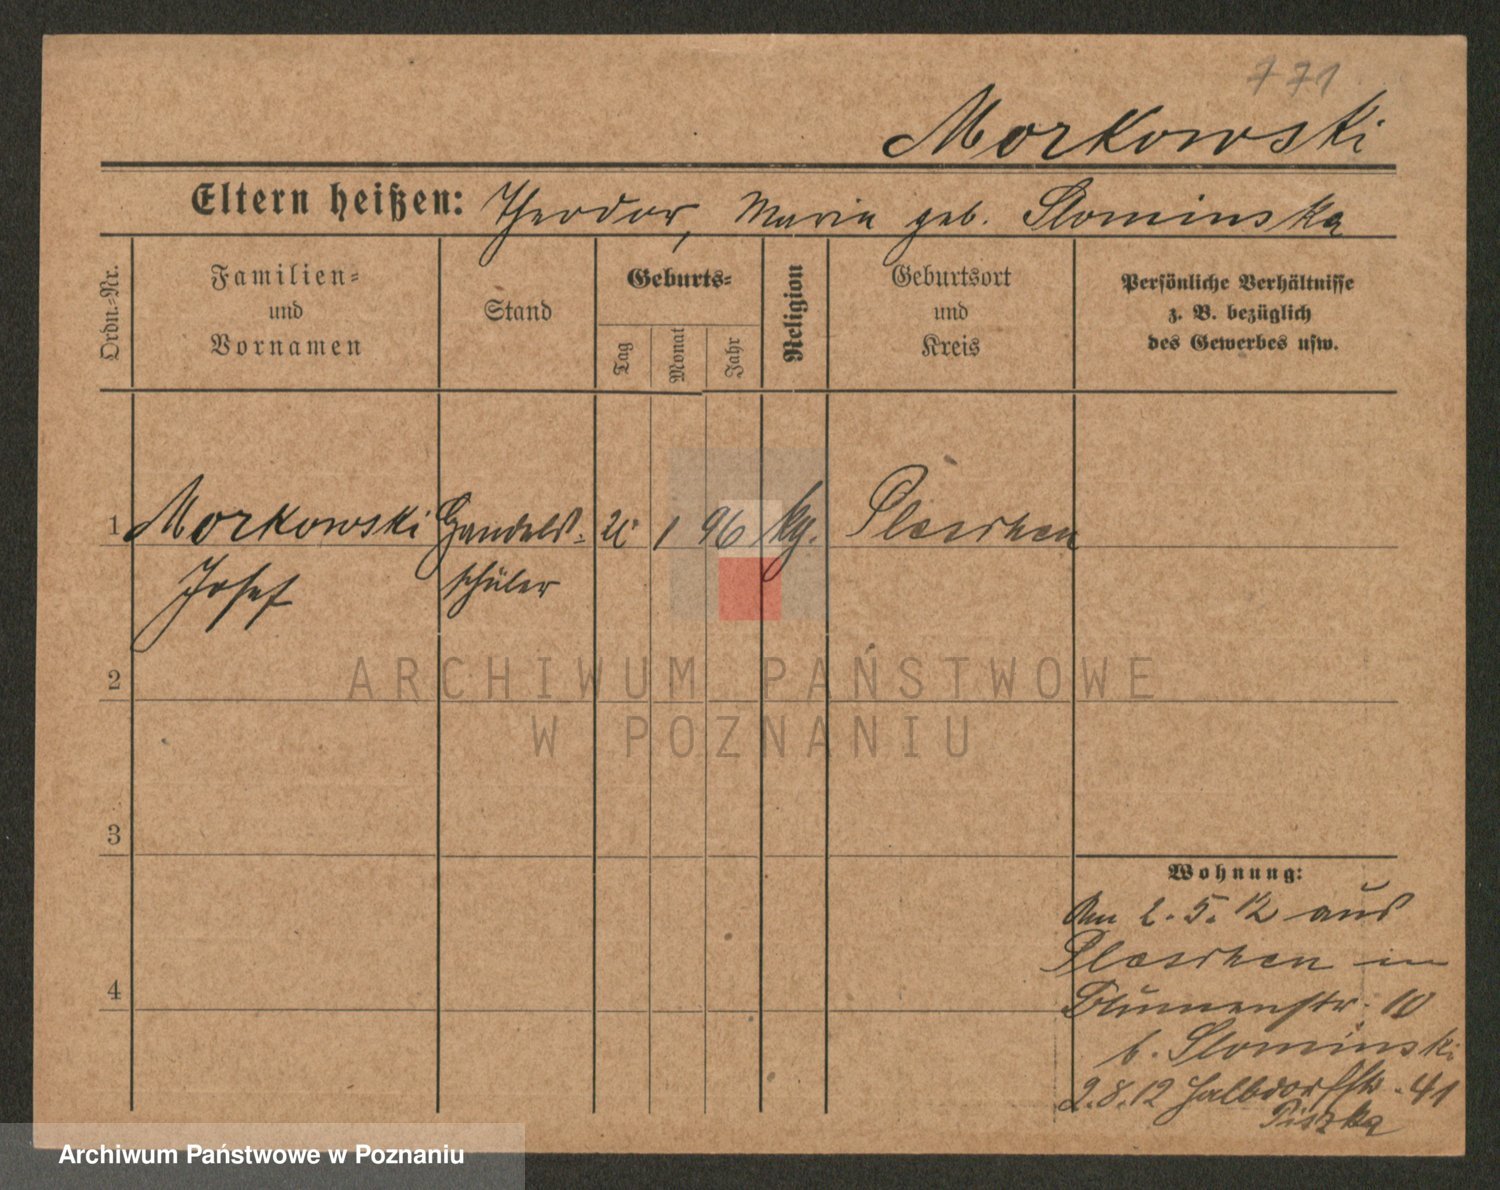 771
Morkowski
Eltern heißen: Theodor, Maria geb. Slominska
Ordn.-Nr.
Familien-
und
Vornamen
Stand
Geburts-
Tag
Monat
Jahr
Religion
Geburtsort
und
Kreis
Persönliche Verhältnisse
z. B. bezüglich
des Gewerbes usw.
1 Morkowski Handels- 1 96 kg. Pleschen
Josef schüler
2
ARCHIWUM PAŃSTWOWE
W POZNANIU
3
Wohnung:
Am 2. 5. 12 aus
Pleschen in
4
Blumenstr. 10
b. Slominski
2.8.12 Halbdorfstr. 41
Piszka
Archiwum Państwowe w Poznaniu